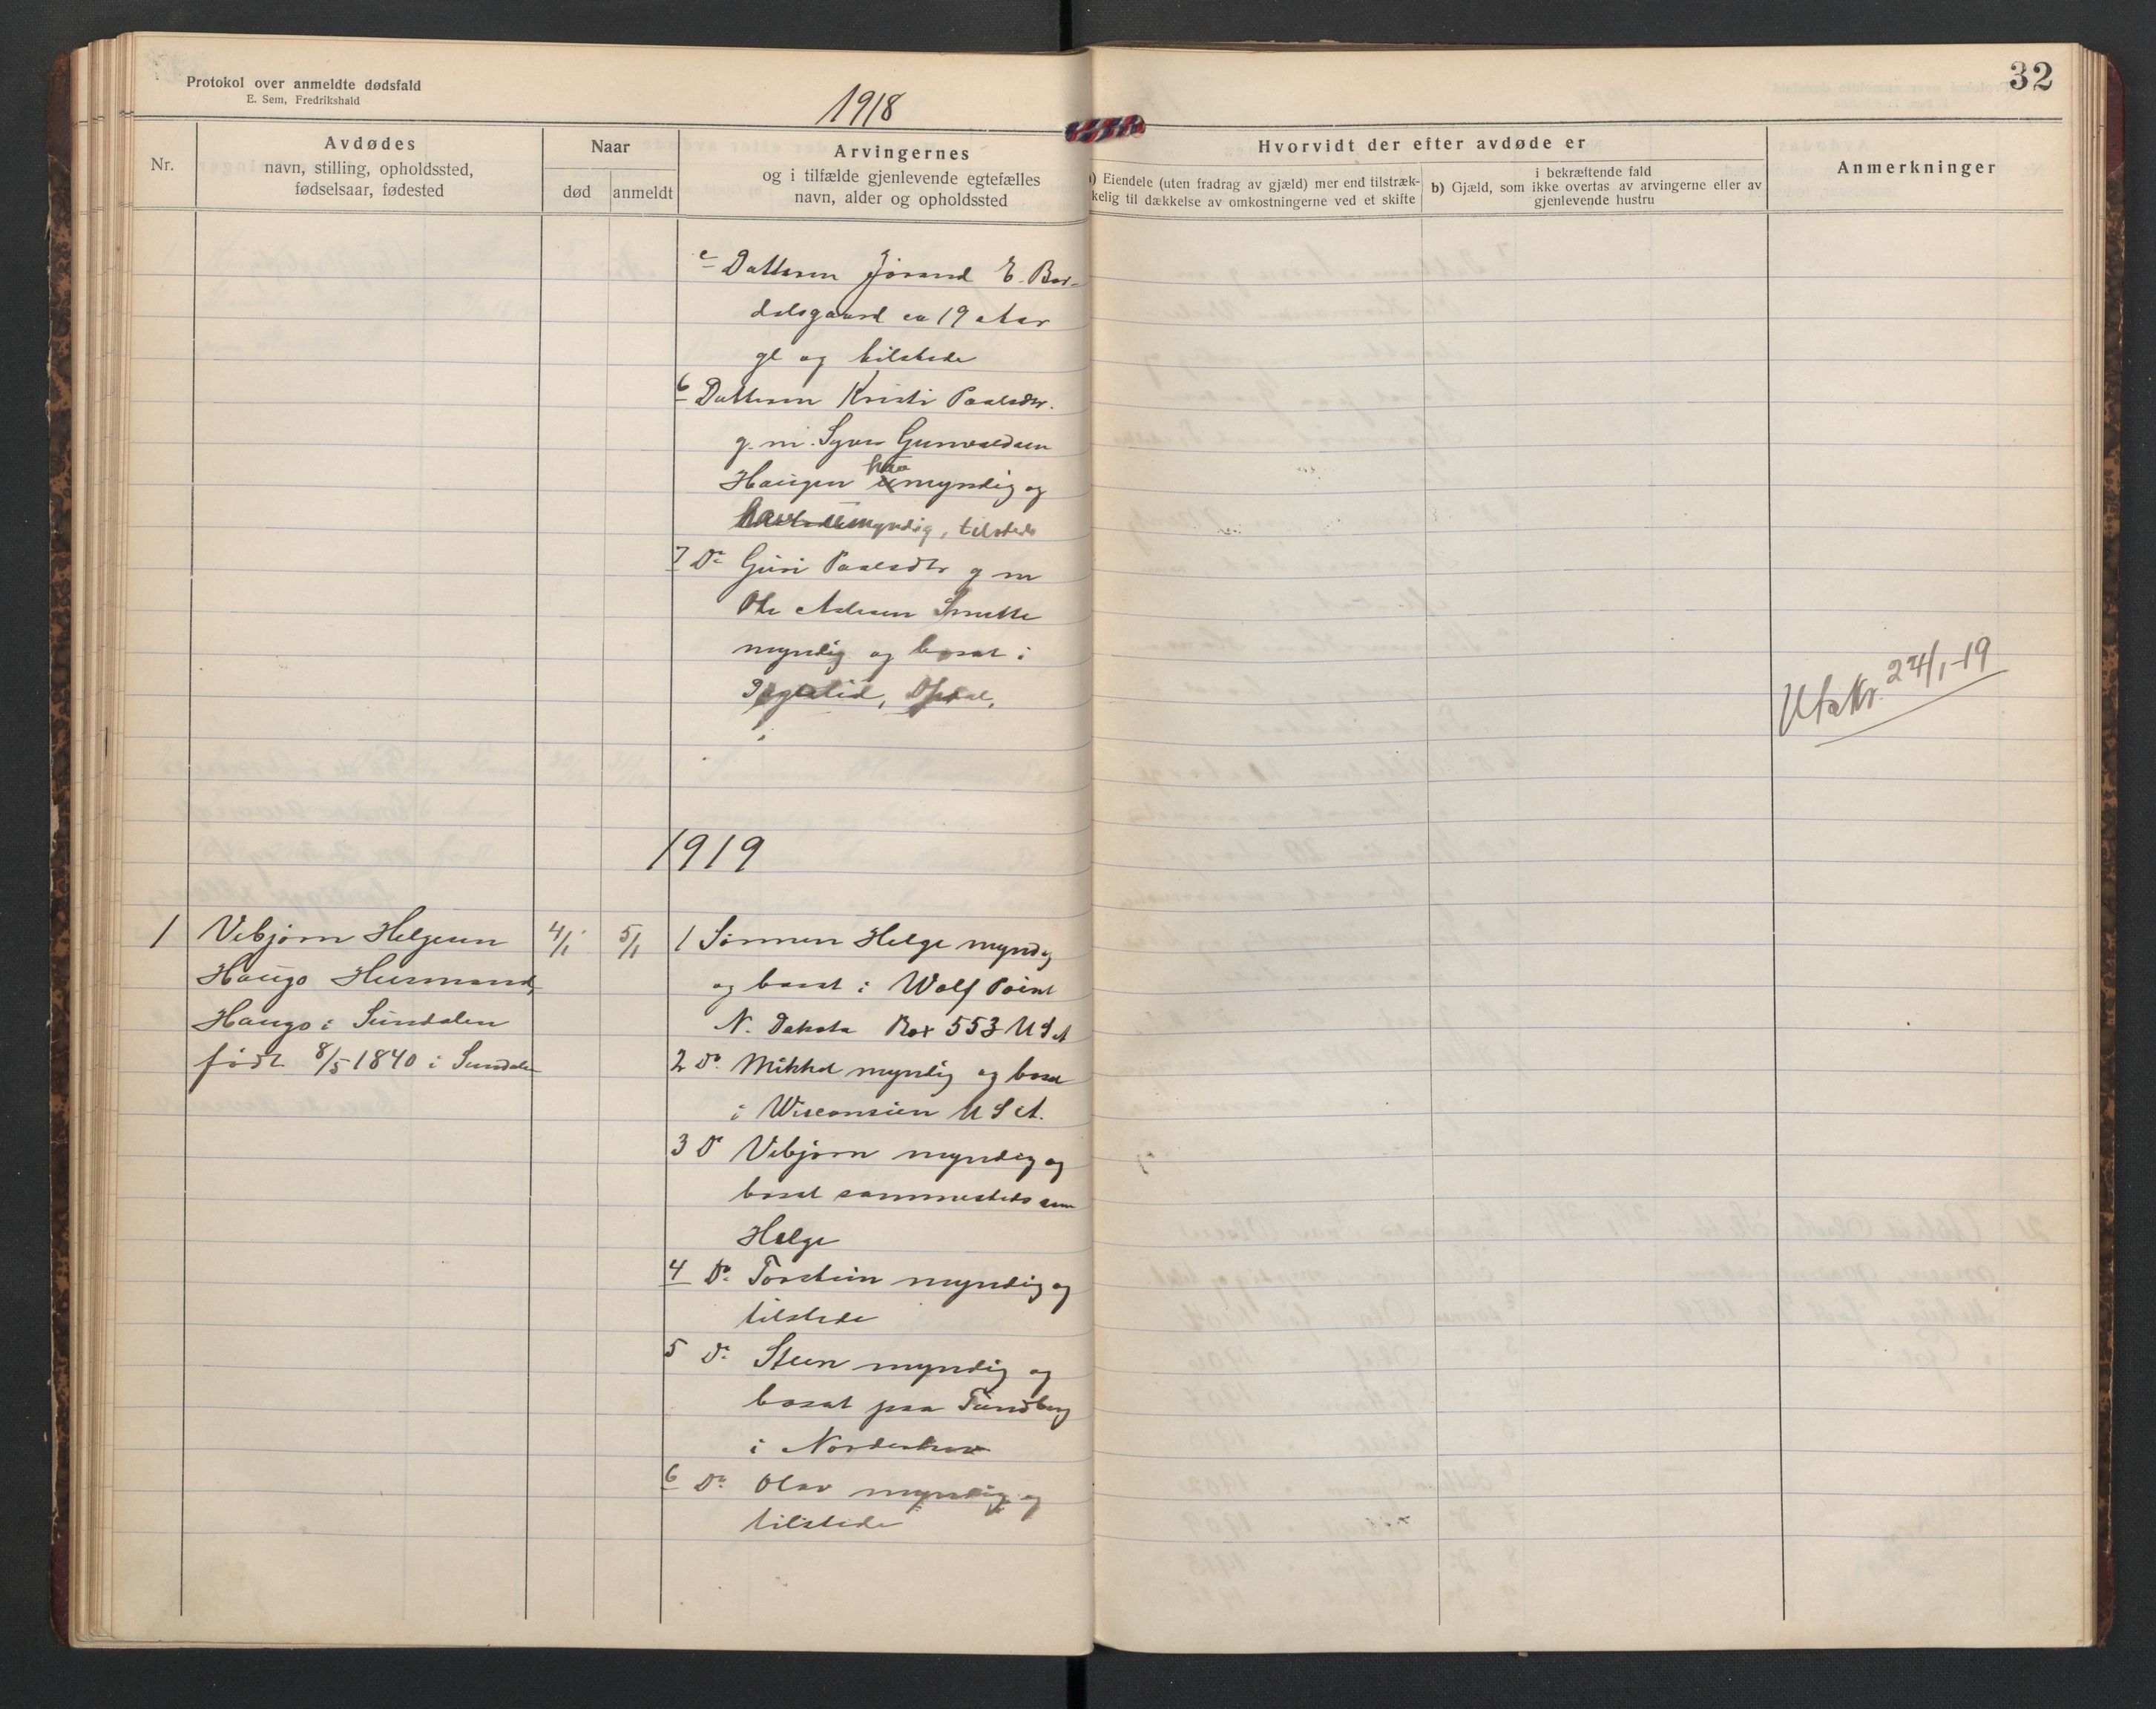 Protokol over anmeldte dødsfald
E. Sem, Fredrikshald
1918
32
Nr.
Avdødes
navn, stilling, opholdssted,
fødselsaar, fødested
Naar
død
anmeldt
Arvingernes
og i tilfælde gjenlevende egtefælles
navn, alder og opholdssted
Hvorvidt der efter avdøde er
a) Eiendele (uten fradrag av gjæld) mer end tilstræk-
kelig til dækkelse av omkostningerne ved et skifte
i bekræftende fald
b) Gjæld, som ikke overtas av arvingerne eller av
gjenlevende hustru
Anmerkninger
c Datteren Jørand E. Bar-
dalsgaard ca 19 Aar
gl og tilstede
6 Datteren Kristi Paalsdtr.
g. m. Syver Gunvaldsen
Haugen myndig og
tilstede
7 Do Guri Paalsdtr g m
Ole Asleson
myndig og bosat i
Opdal.
Utskr. 24/1-19
1919
1 Vebjørn Helgesen
Haugo Husmand,
Haugo i Sundalen
født 8/5 1840 i Sundalen
4/1
5/1
1 Sønnen Helge myndig
og bosat i Wolf Point
N. Dakota Box 553 U S A
2 Do. Mikkel myndig og bosat
i Wisconsien U S A.
3 Do Vebjørn myndig og
bosat sammesteds som
Helge
4 Do. Torstein myndig og
tilstede
5 Do. Steen myndig og
bosat paa Tandberg
i Norderhov
6 Do. Olav myndig og
tilstede